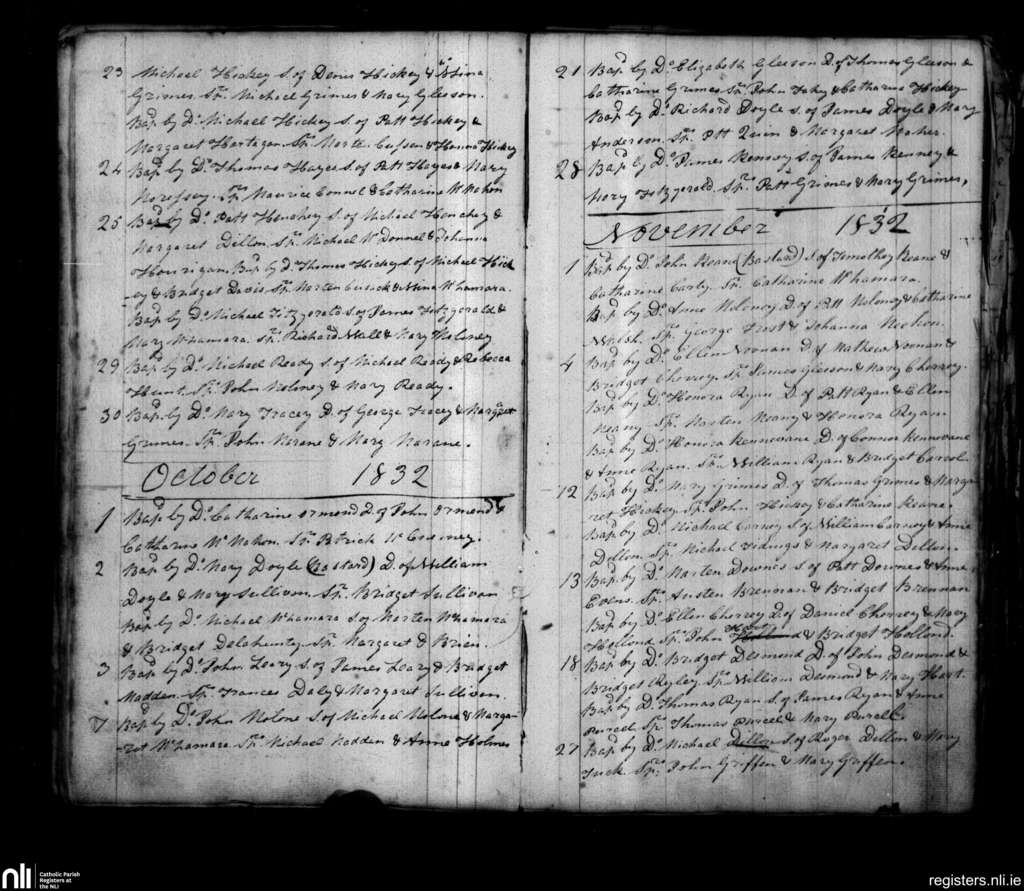 23 Michael Hickey S. of Denis Hickey &
Grimes Sprs. Michael Grimes & Mary Gleeson.
Bapd. by Do. Michael Hickey S. of Patt Hickey &
Margaret Hartigan Sprs. & Hanna Hickey
24 Bapd. by Do. Thomas Hayes S. of Patt Hayes & Mary
Sprs. Maurice Connel & Catharine McMahon
25 Bapd. by Do. Patt Henchey S. of Michael Henchey &
Margaret Dillon Sprs. Michael McDonnel & Johanna
Hourrigan. Bapd. by Do. Thomas Hickey S. of Michael Hick
ey & Bridget Davis Sprs. Morten Cusack &
Bapd. by Do. Michael Fitzgerald S. of James Fitzgerald &
Mary Sprs. Richard Wall & Mary Moloney
29 Bapd. by Do. Michael Ready S. of Michael Ready & Rebecca
Hunt. Sprs. John Moloney & Mary Ready.
30 Bapd. by Do. Mary Tracey D. of George Tracey & Margaret
Grimes. Sprs. John Marane & Mary Marane.
October 1832
1 Bapd. by Do. Catharine Ormond D. of John Ormond &
Catharine McMahon. Sprs. Patrick
2 Bapd. by Do. Mary Doyle (Bastard) D. of William
Doyle & Mary Sullivan Sprs. Bridget Sullivan
Bapd. by Do. Michael McNamara S. of Morten McNamara
& Bridget Delahunty. Sprs. Margaret O Brien.
3 Bapd. by Do. John Leary S. of James Leary & Bridget
Madden. Sprs. Frances Daly & Margaret Sullivan.
7 Bapd. by Do. John Molone S. of Michael Molone & Marga-
-ret McNamara Sprs. Michael Madden & Anne Holmes
21 Bapd. by Do. Elizabeth Gleeson D. of Thomas Gleeson &
Catharine Grimes Sprs. John Fahy & Catharine Hickey
Bapd. by Do. Richard Doyle S. of James Doyle & Mary
Anderson. Sprs. Patt Quin & Margaret Maher.
28 Bapd. by Do. James Kenney S. of James Kenney &
Mary Fitzgerald. Sprs. Patt Grimes & Mary Grimes,
November 1832
1 Bapd. by Do. John Keane (Bastard) S. of Timothey Keane &
Catharine Carty. Sprs. Catharine McNamara.
Bapd. by Do. Anne Moloney D. of Patt Moloney & Catharine
Walsh. Sprs. George Frost & Johanna Meehan.
4 Bapd. by Do. Ellen Noonan D. of Mathew Noonan &
Bridget Sprs. James Gleeson & Mary
Bapd. by Do. Honora Ryan D. of Patt Ryan & Ellen
Meany Sprs. Marten Meany & Honora Ryan
Bapd. by Do. Honora Kennevane D. of Connor Kennevane
& Anne Ryan. Sprs. William Ryan & Bridget Carrol.
12 Bapd. by Do. Mary Grimes D. of Thomas Grimes & Marga-
ret Hickey. Sprs. John Hickey & Catharine Keane.
Bapd. by Do. Michael Carney S. of William Carney & Anne
Dillon. Sprs. Michael & Margaret Dillon.
13 Bapd. by Do. Marten Downes S. of Patt Downes & Anne
Evens. Sprs. Austen Brennan & Bridget Brennan
Bapd. by Do. Ellen D. of Daniel & Mary
Holland Sprs. John & Bridget Holland.
18 Bapd. by Do. Bridget Desmond D. of John Desmond &
Bridget Sprs. William Desmond & Mary Hart.
Bapd. by Do. Thomas Ryan S. of James Ryan & Anne
Purcel Sprs. Thomas Purcel & Mary Purcel.
27 Bapd. by Do. Michael Dillon S. of Roger Dillon & Mary
Tuck. Sprs. John Griffen & Mary Griffen.
nli Catholic Parish
Registers at
the NLI
registers.nli.ie